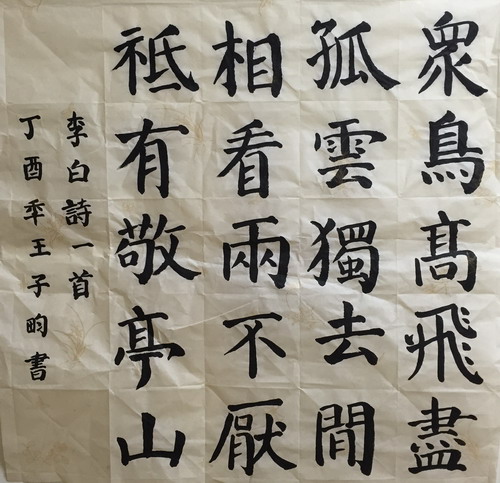 眾鳥高飛盡
孤雲獨去閒
相看兩不厭
祗有敬亭山
李白詩一首
丁酉年王子昀書